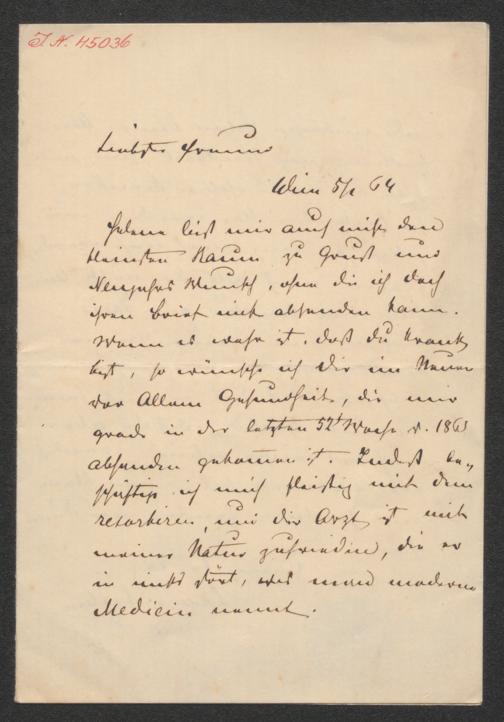 I. N. 45036
Liebster Freund
Wien 5/1 64
Helene läßt mir auch nicht den
kleinsten Raum zu Gruß und
Neujahrs Wunsch, ohne die ich doch
ihren Brief nicht absenden kann.
Wenn es wahr ist, daß du krank
bist, so wünsche ich dir im Neuen
vor Allem Gesundheit, die mir
grade in der letzten 52t Woche v. 1863
abhanden gekommen ist. Indeß be„
schäftige ich mich fleißig mit dem
resorbiren, und der Arzt ist mit
meiner Natur zufrieden, die er
in nichts stört, was man moderne
Medicin nennt.